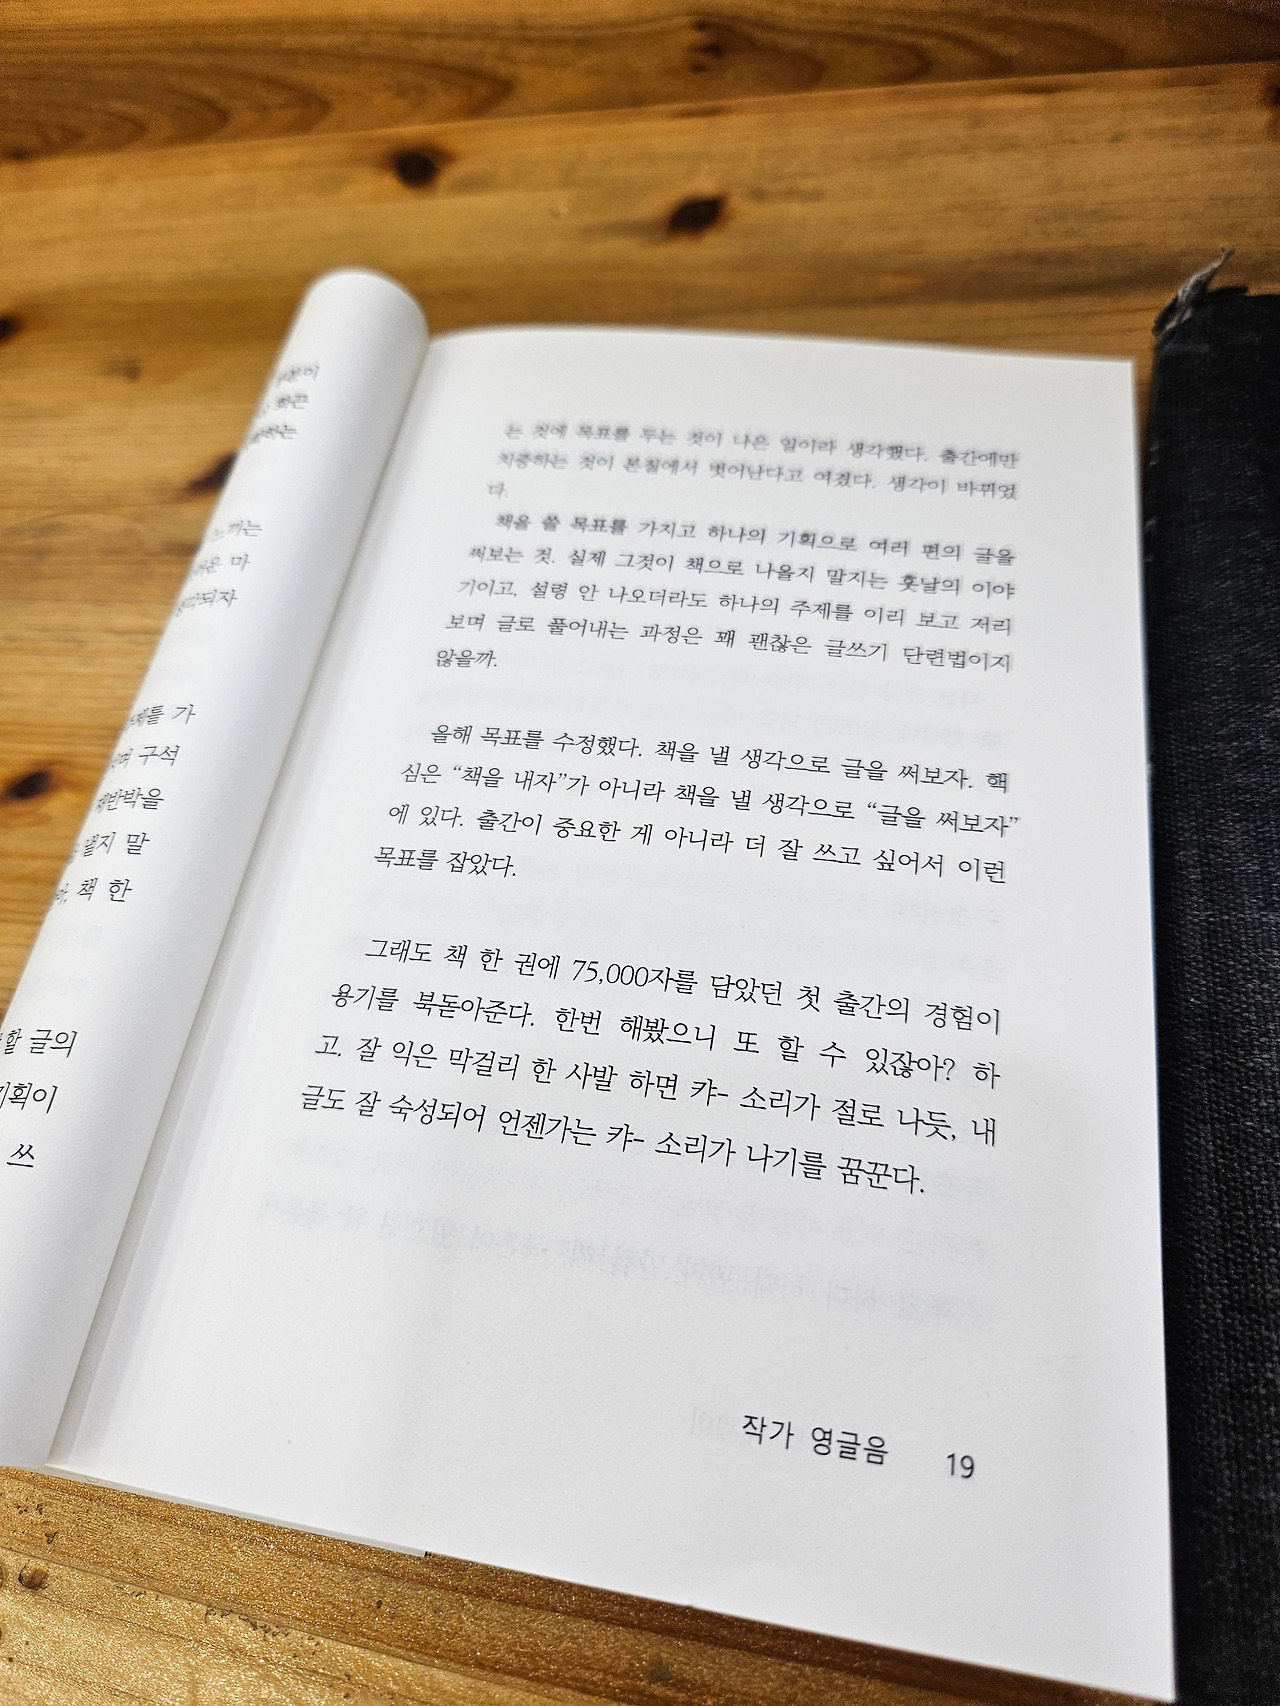 느끼는
마
가
구석
제반박을
낼지 말
책 한
할 글의
기획이
쓰
는 것에 목표를 두는 것이 나은 일이라 생각했다. 출간에만
치중하는 것이 본질에서 벗어난다고 여겼다. 생각이 바뀌었
다.
책을 쓸 목표를 가지고 하나의 기획으로 여러 편의 글을
써보는 것. 실제 그것이 책으로 나올지 말지는 훗날의 이야
기이고, 설령 안 나오더라도 하나의 주제를 이리 보고 저리
보며 글로 풀어내는 과정은 꽤 괜찮은 글쓰기 단련법이지
않을까.
올해 목표를 수정했다. 책을 낼 생각으로 글을 써보자. 핵
심은 “책을 내자”가 아니라 책을 낼 생각으로 “글을 써보자”
에 있다. 출간이 중요한 게 아니라 더 잘 쓰고 싶어서 이런
목표를 잡았다.
그래도 책 한 권에 75,000자를 담았던 첫 출간의 경험이
용기를 북돋아준다. 한번 해봤으니 또 할 수 있잖아? 하
고. 잘 익은 막걸리 한 사발 하면 캬- 소리가 절로 나듯, 내
글도 잘 숙성되어 언젠가는 캬- 소리가 나기를 꿈꾼다.
작가 영글음 19